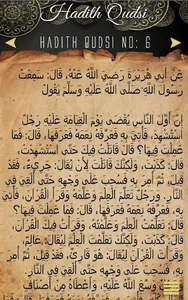 Hadith Qudsi
HADITH QUDSI NO: 6
عَنْ أَبِي هُرَيْرَةَ رَضِيَ اللَّهُ عَنْهُ، قَالَ: سَمِعْتُ
رَسُولَ اللَّهِ ﷺ يَقُولُ
إِنَّ أَوَّلَ النَّاسِ يُقْضَى يَوْمَ الْقِيَامَةِ عَلَيْهِ رَجُلٌ
اسْتُشْهِدَ، فَأُتِيَ بِهِ فَعَرَّفَهُ نِعَمَهُ فَعَرَفَهَا، قَالَ: فَمَا
عَمِلْتَ فِيهَا؟ قَالَ قَاتَلْتُ فِيكَ حَتَّى اسْتُشْهِدْتُ،
قَالَ: كَذَبْتَ، وَلَكِنَّكَ قَاتَلْتَ لِأَنْ يُقَالَ: جَرِيءٌ، فَقَدْ
قِيلَ، ثُمَّ أُمِرَ بِهِ فَسُحِبَ عَلَى وَجْهِهِ حَتَّى أُلْقِيَ فِي
النَّارِ. وَرَجُلٌ تَعَلَّمَ الْعِلْمَ وَعَلَّمَهُ وَقَرَأَ الْقُرْآنَ، فَأُتِيَ
بِهِ، فَعَرَّفَهُ نِعَمَهُ فَعَرَفَهَا، قَالَ: فَمَا عَمِلْتَ فِيهَا؟
قَالَ: تَعَلَّمْتُ الْعِلْمَ وَعَلَّمْتُهُ، وَقَرَأْتُ فِيكَ الْقُرْآنَ،
قَالَ: كَذَبْتَ، وَلَكِنَّكَ تَعَلَّمْتَ الْعِلْمَ لِيُقَالَ: عَالِمٌ،
وَقَرَأْتَ الْقُرْآنَ لِيُقَالَ: هُوَ قَارِئٌ، فَقَدْ قِيلَ، ثُمَّ أُمِرَ
بِهِ، فَسُحِبَ عَلَى وَجْهِهِ حَتَّى أُلْقِيَ فِي النَّارِ.
وَرَجُلٌ وَسَّعَ اللَّهُ عَلَيْهِ، وَأَعْطَاهُ مِنْ أَصْنَافِ